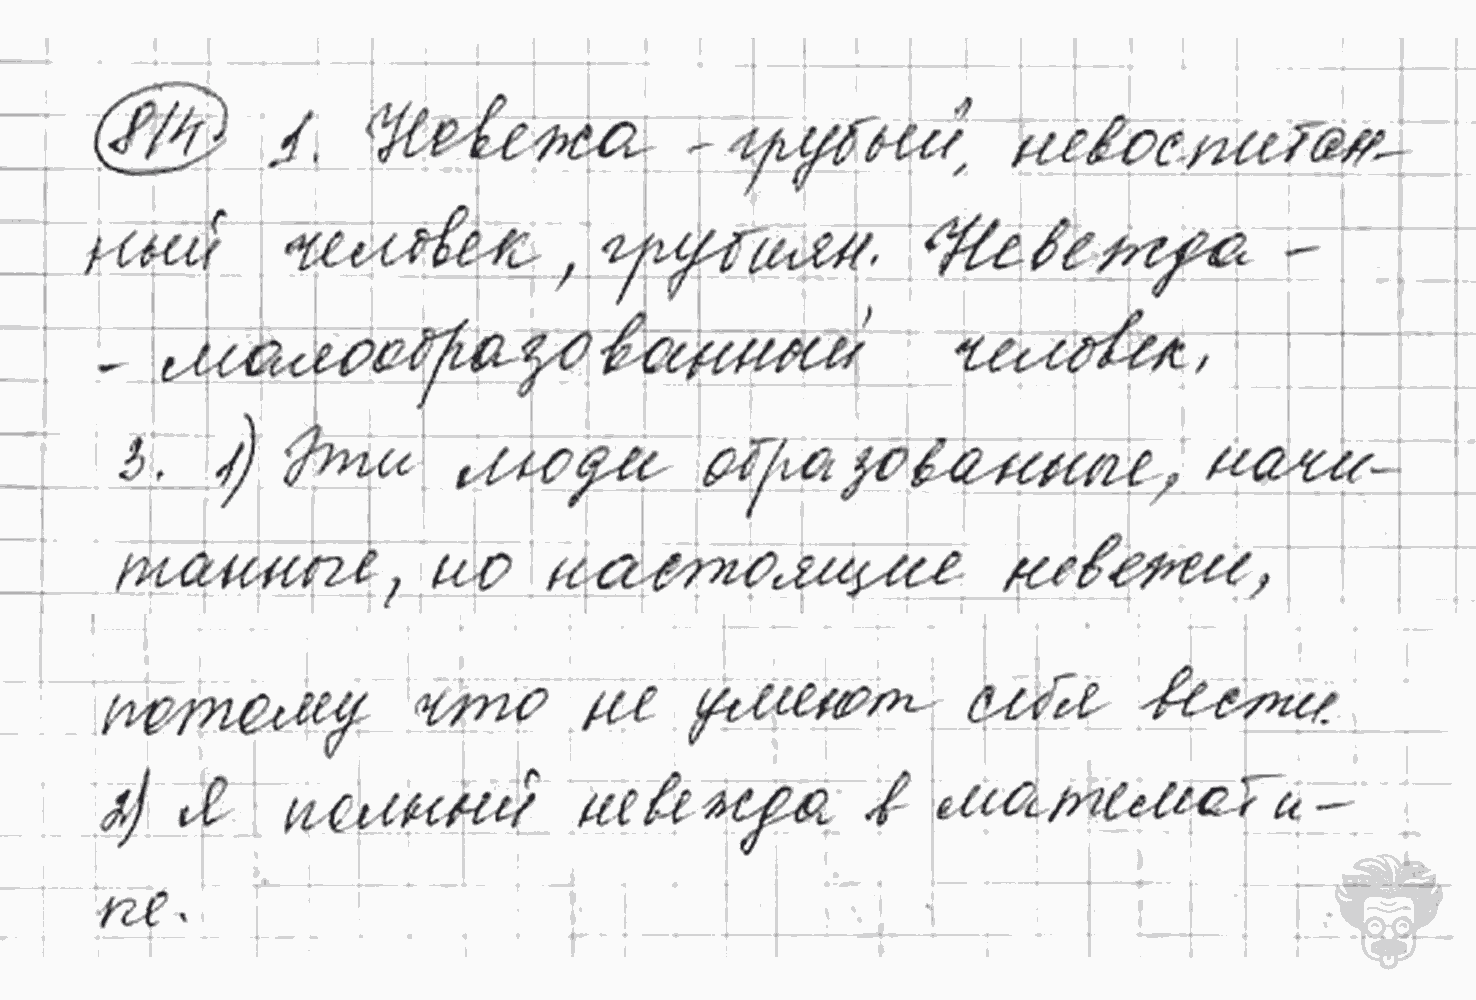 814. 1. Невежа - грубый, невоспитан-
ный человек, грубиян. Невежда -
- малообразованный человек.
3. 1) Эти люди образованные, начи-
танные, но настоящие невежи,
потому что не умеют себя вести.
2) Я полный невежда в математи-
ке.